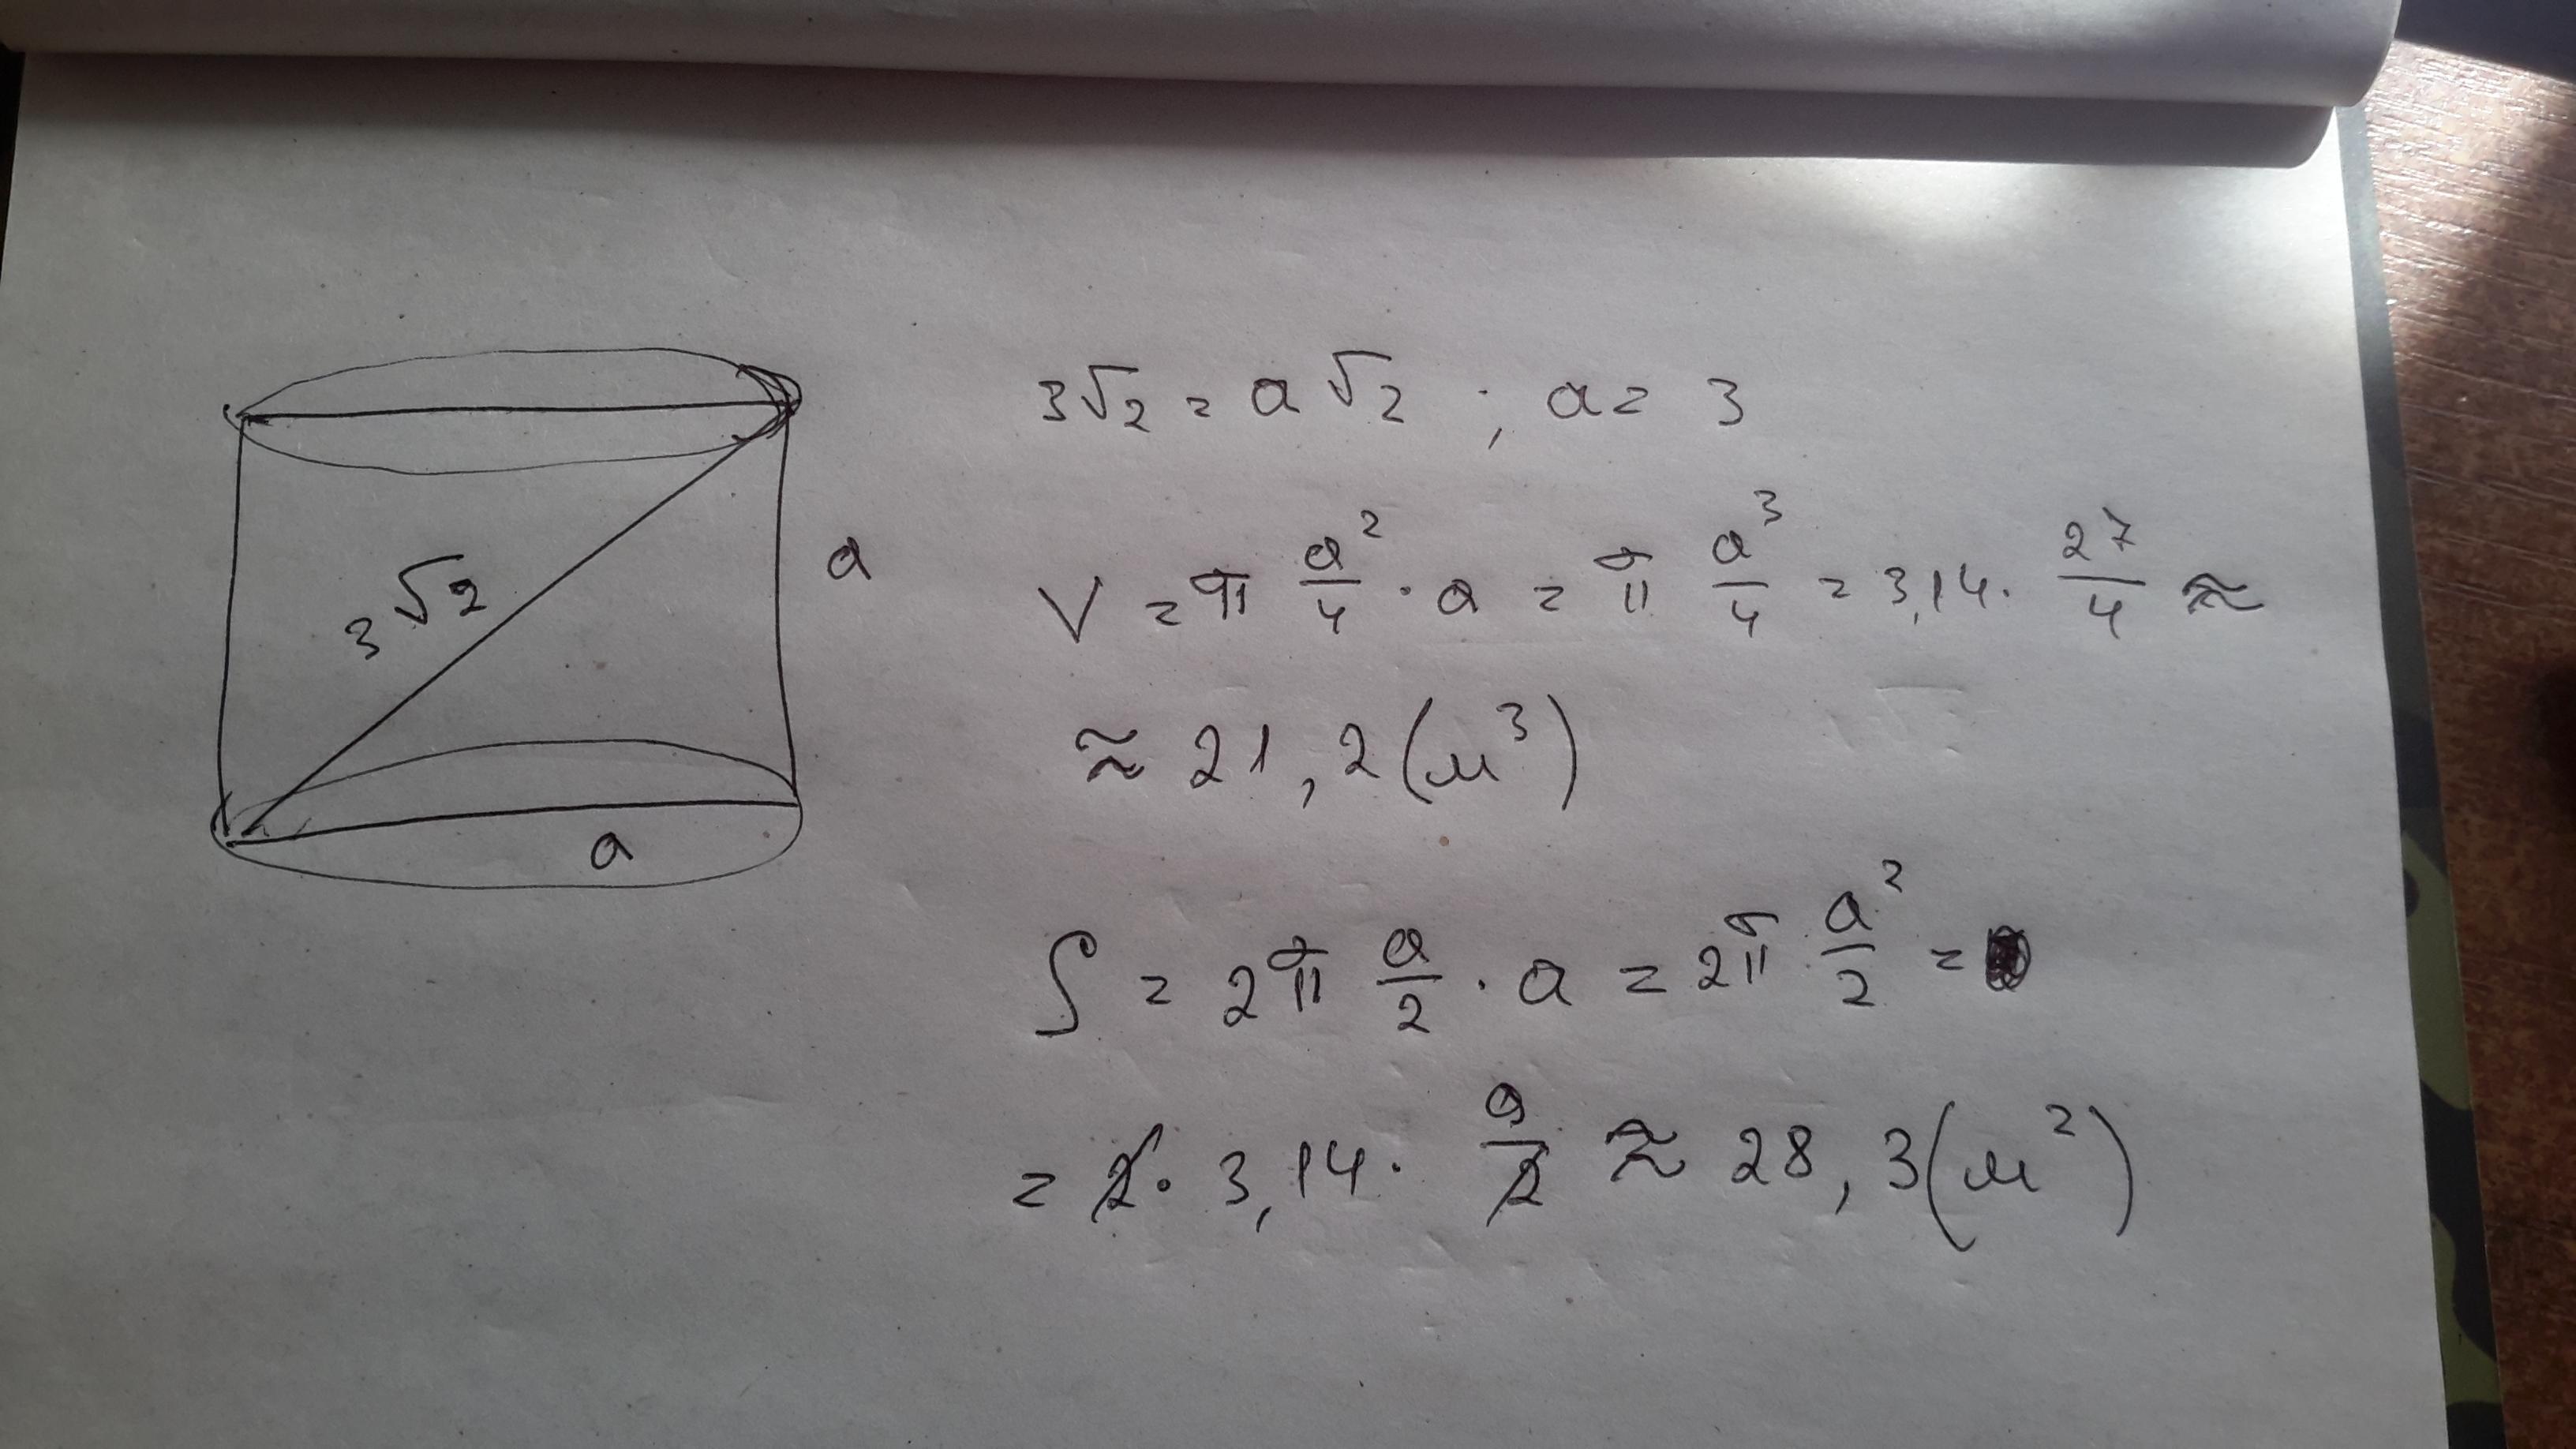 3√2
a
a
3√2 = a√2 ; a = 3
V = π a²/4 · a = π a³/4 = 3,14 · 27/4 ≈
≈ 21,2 (м³)
S = 2π a/2 · a = 2π a²/2 =
= 2 · 3,14 · 9/2 ≈ 28,3 (м²)